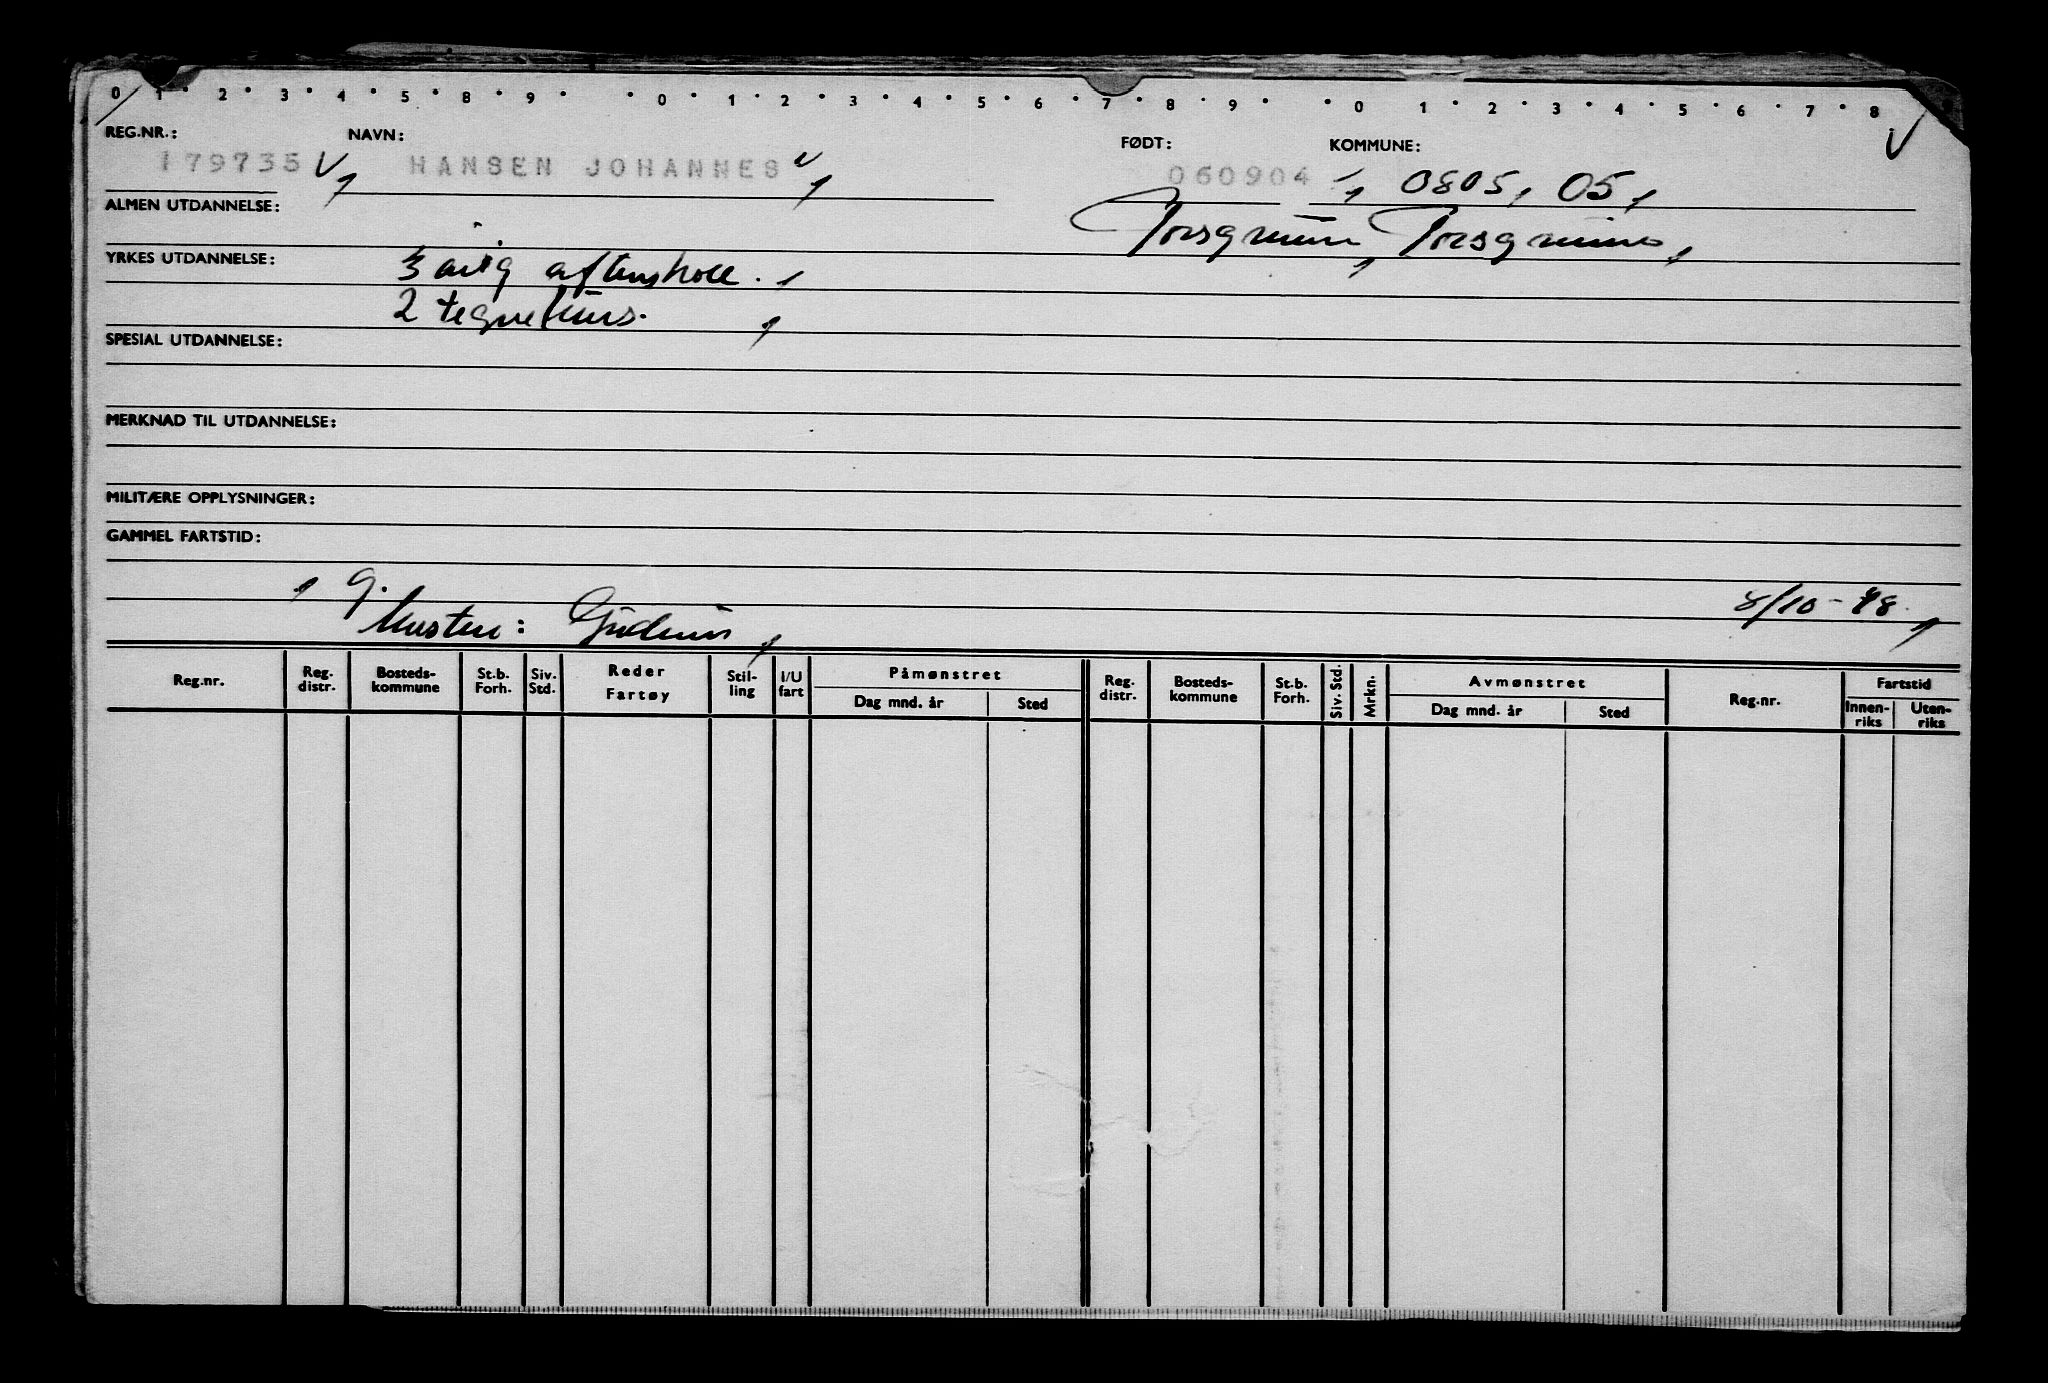 0 1 2 3 4 5 8 9 0 1 2 3 4 5 6 7 8 9 0 1 2 3 4 5 6 7 8
REG.NR.: NAVN: FØDT: KOMMUNE:
179735 HANSEN JOHANNES 060904 0805, 05,
ALMEN UTDANNELSE: Porsgrunn, Porsgrunn,
YRKES UTDANNELSE: 3 årig aftenskole.
2 tegnekurs.
SPESIAL UTDANNELSE:
MERKNAD TIL UTDANNELSE:
MILITÆRE OPPLYSNINGER:
GAMMEL FARTSTID:
g.
Kusten: Gudrun 8/10-48.
Reg.nr. Reg. distr. Bosteds-kommune St.b. Forh. Siv. Std. Reder Fartøy Stil-ling I/U fart Påmønstret Dag mnd. år Sted Reg. distr. Bosteds-kommune St.b. Forh. Siv. Std. Mrkn. Avmønstret Dag mnd. år Sted Reg.nr. Fartstid Innen-riks Uten-riks